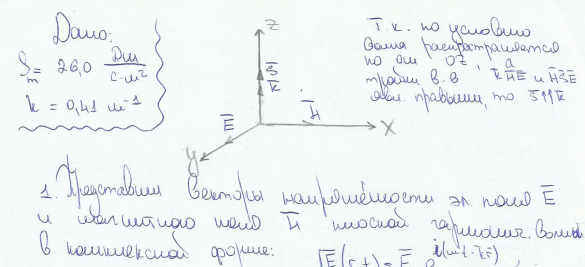 Дано:
S_m = 26,0 Дж/с·м²
k = 0,41 м⁻¹
Z
S̅
k̅
E̅
H̅
X
y
Т.к. по условию
волна распространяется
по оси OZ, а
тройки в-в k̅H̅E̅ и H̅S̅E̅
явл. правыми, то S̅↑↑k̅
1. Представим векторы напряжённости эл. поля E̅
и магнитного поля H̅ плоской гармонич. волны
в комплексной форме:
E̅(r,t) = E̅ e^{i(ωt-k̅r̅)}